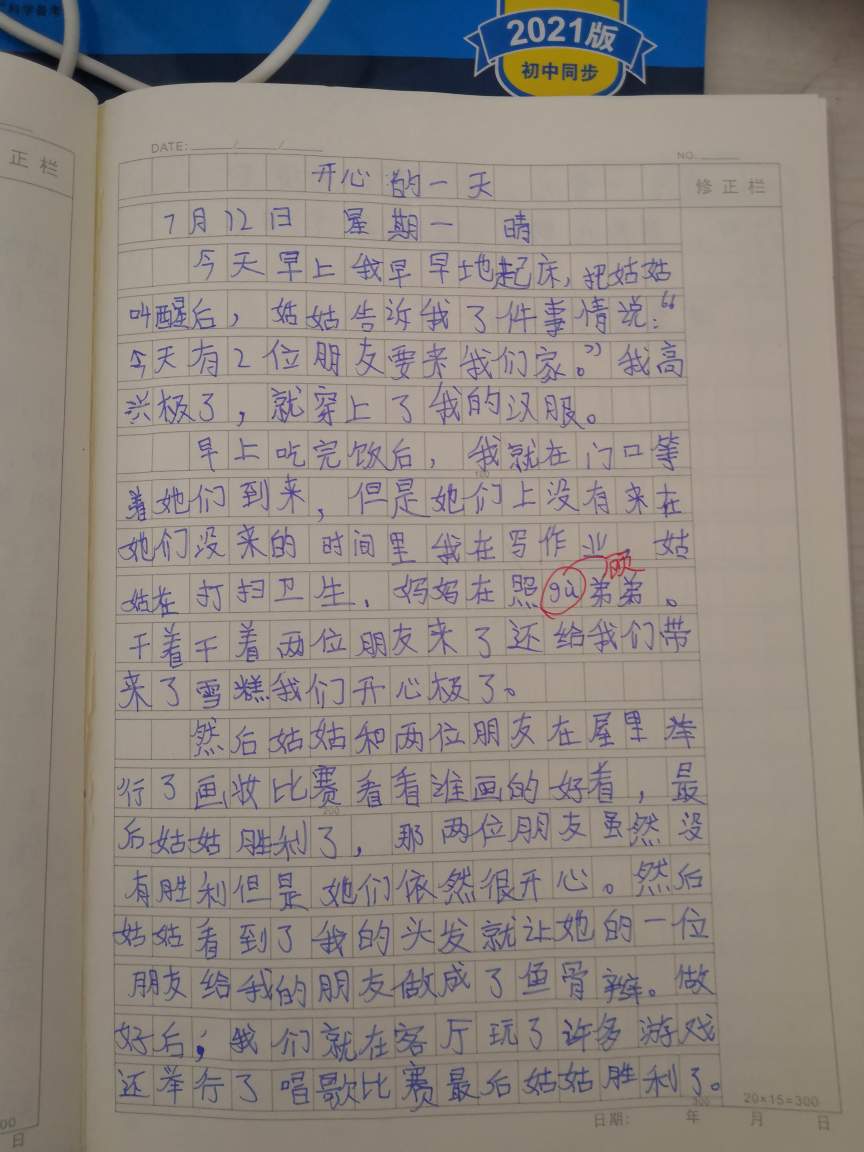 科学备考
2021版
初中同步
DATE: / /
NO.
正栏
修正栏
开心的一天
7月12日 星期一 晴
今天早上我早早地起床,把姑姑
叫醒后,姑姑告诉我了件事情说:“
今天有2位朋友要来我们家。”我高
兴极了,就穿上了我的汉服。
早上吃完饭后,我就在门口等
着她们到来,但是她们上没有来在
她们没来的时间里我在写作业 姑
姑在打扫卫生,妈妈在照gù顾弟弟。
干着干着两位朋友来了还给我们带
来了雪糕我们开心极了。
然后姑姑和两位朋友在屋里举
行了画妆比赛看看谁画的好看,最
后姑姑胜利了,那两位朋友虽然没
有胜利但是她们依然很开心。然后
姑姑看到了我的头发就让她的一位
朋友给我的朋友做成了鱼骨辫。做
好后;我们就在客厅玩了许多游戏
还举行了唱歌比赛最后姑姑胜利了。
100
200
300
20×15=300
日期: 年 月 日
00
日